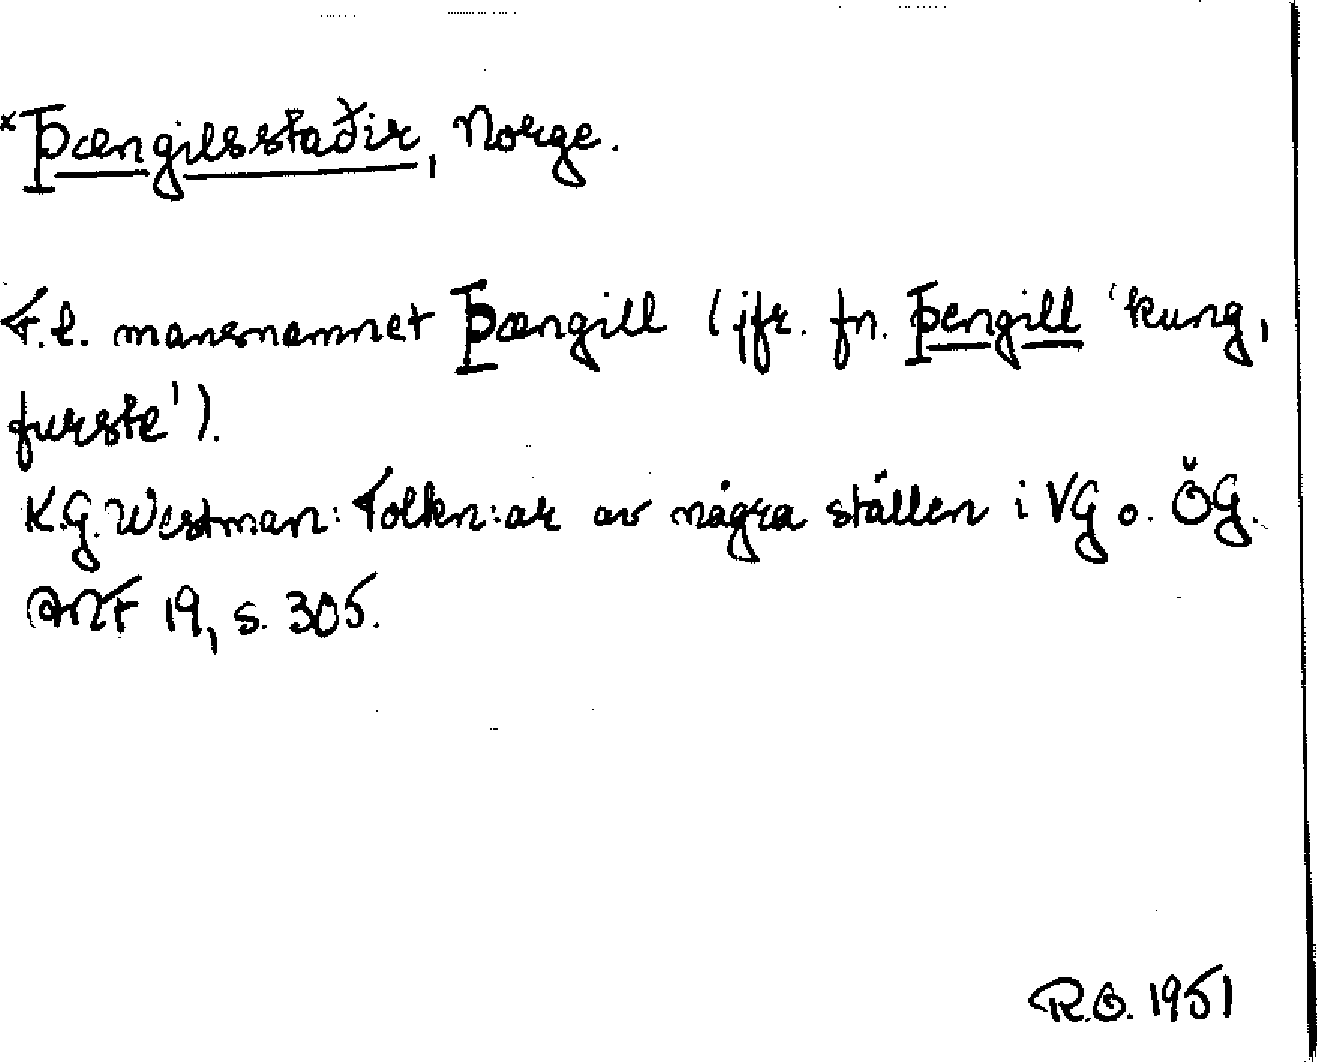 *Þængilsstaðir, Norge.
F.l. mansnamnet Þængill (jfr. fn. Þengill 'kung,
furste').
K.G. Westman: Tolkn:ar av några ställen i VG o. ÖG.
ANF 19, s. 305.
R.O. 1951